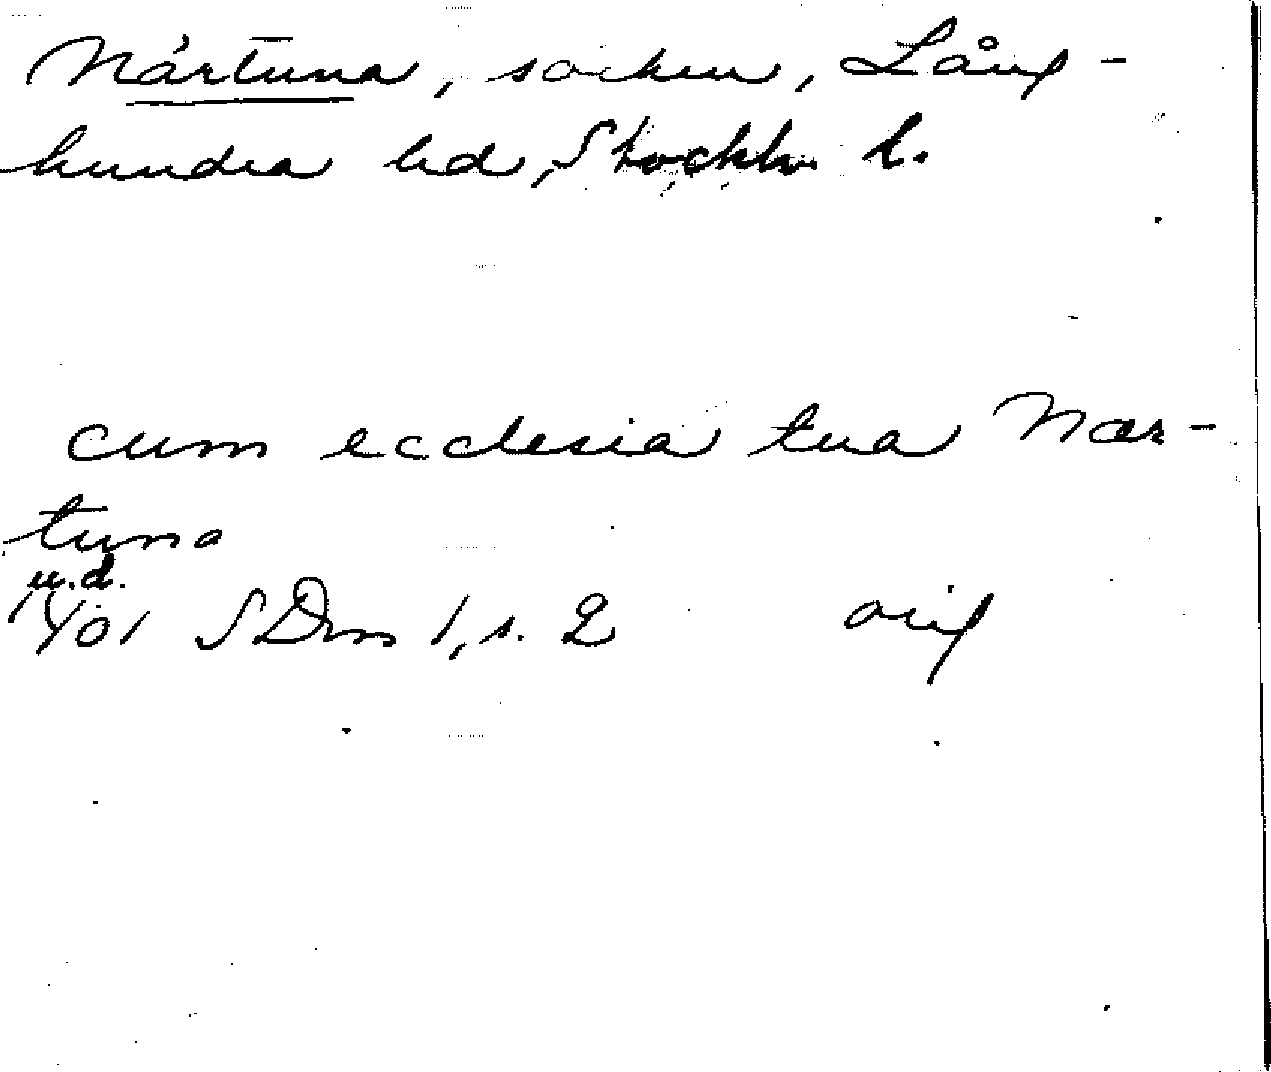 Närtuna, socken, Lång-
hundra hd, Stockh. l.
cum ecclesia tua Nær-
tuna
u.d.
1401 SDns 1, s. 2 orig